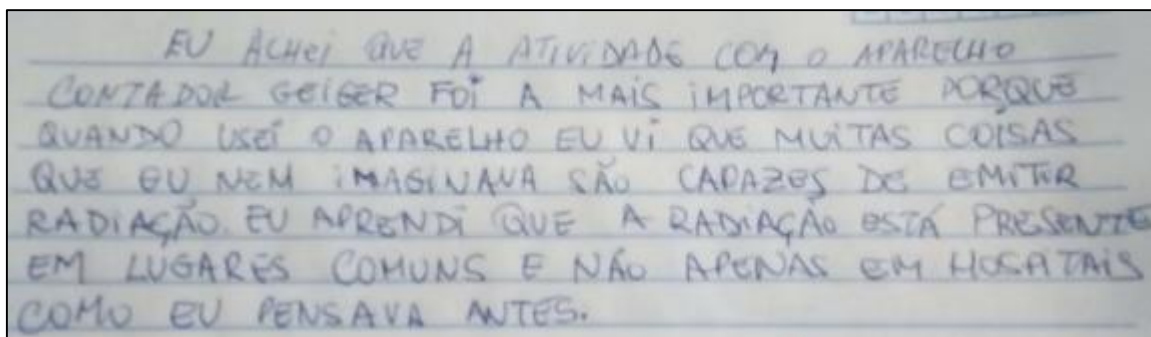 EU ACHEI QUE A ATIVIDADE COM O APARELHO
CONTADOR GEIGER FOI A MAIS IMPORTANTE PORQUE
QUANDO USEI O APARELHO EU VI QUE MUITAS COISAS
QUE EU NEM IMAGINAVA SÃO CAPAZES DE EMITIR
RADIAÇÃO. EU APRENDI QUE A RADIAÇÃO ESTÁ PRESENTE
EM LUGARES COMUNS E NÃO APENAS EM HOSPITAIS
COMO EU PENSAVA ANTES.